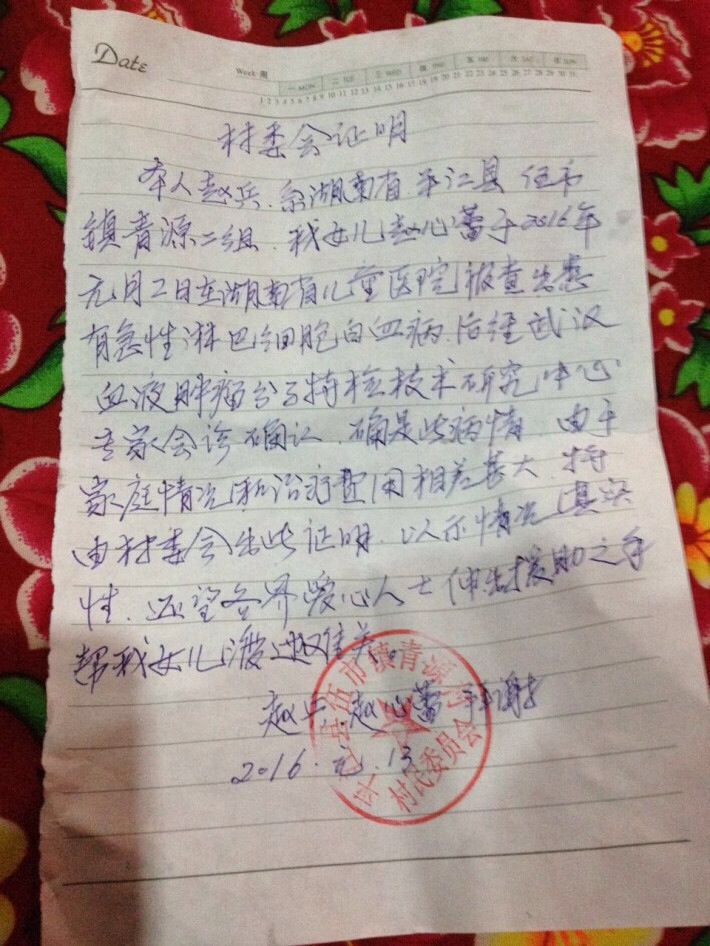 Date
Week 周
一 MON 二 TUE 三 WED 四 THU 五 FRI 六 SAT 日 SUN
1 2 3 4 5 6 7 8 9 10 11 12 13 14 15 16 17 18 19 20 21 22 23 24 25 26 27 28 29 30 31
村委会证明
本人赵兵,系湖南省平江县伍市
镇青源二组.我女儿赵心蕾于2016年
元月2日在湖南省儿童医院被查出患
有急性淋巴细胞白血病.后经武汉
血液肿瘤分子特检技术研究中心
专家会诊确认,确是此病情.由于
家庭情况和治疗费用相差甚大.特
由村委会出此证明.以示情况真实
性.还望各界爱心人士伸出援助之手
帮我女儿渡过难关。
赵兵.赵心蕾 拜谢
2016.元.13
平江县伍市镇青源村
村民委员会